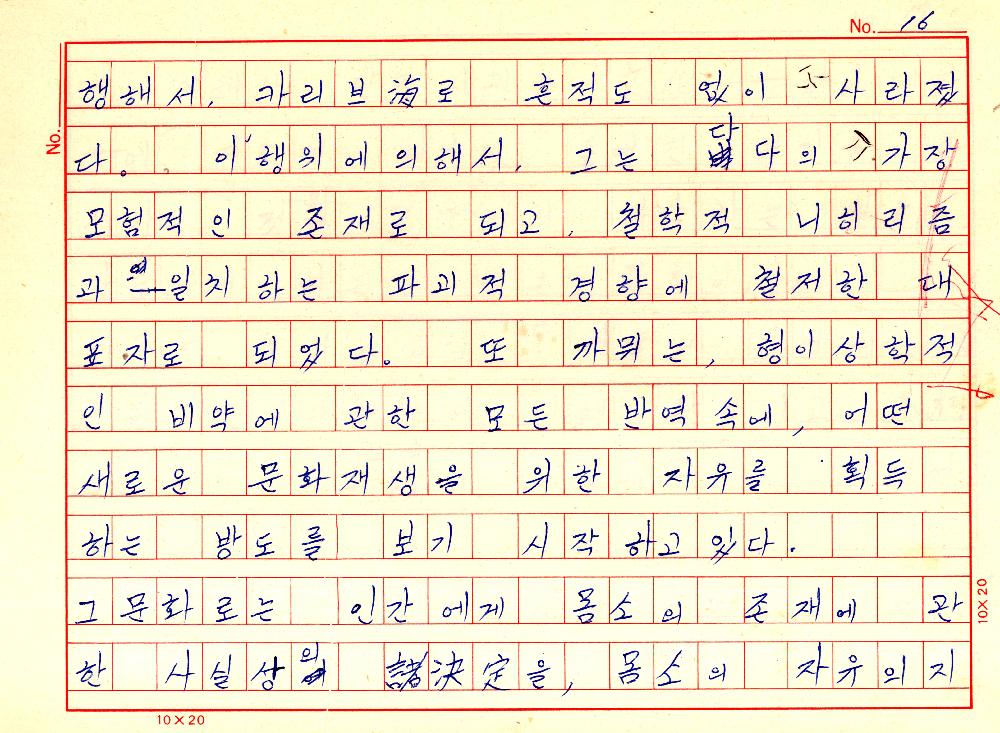 No. 16
행해서, 카리브海로 흔적도 없이 사라졌
다. 이 행위에 의해서, 그는 다다의 가장
모험적인 존재로 되고, 철학적 니히리즘
과 일치하는 파괴적 경향에 철저한 대
표자로 되었다. 또 까뮈는, 형이상학적
인 비약에 관한 모든 반역 속에, 어떤
새로운 문화재생을 위한 자유를 획득
하는 방도를 보기 시작하고 있다.
그 문화로는 인간에게 몸소의 존재에 관
한 사실상의 諸決定을, 몸소의 자유의 지
No.
10×20
10×20